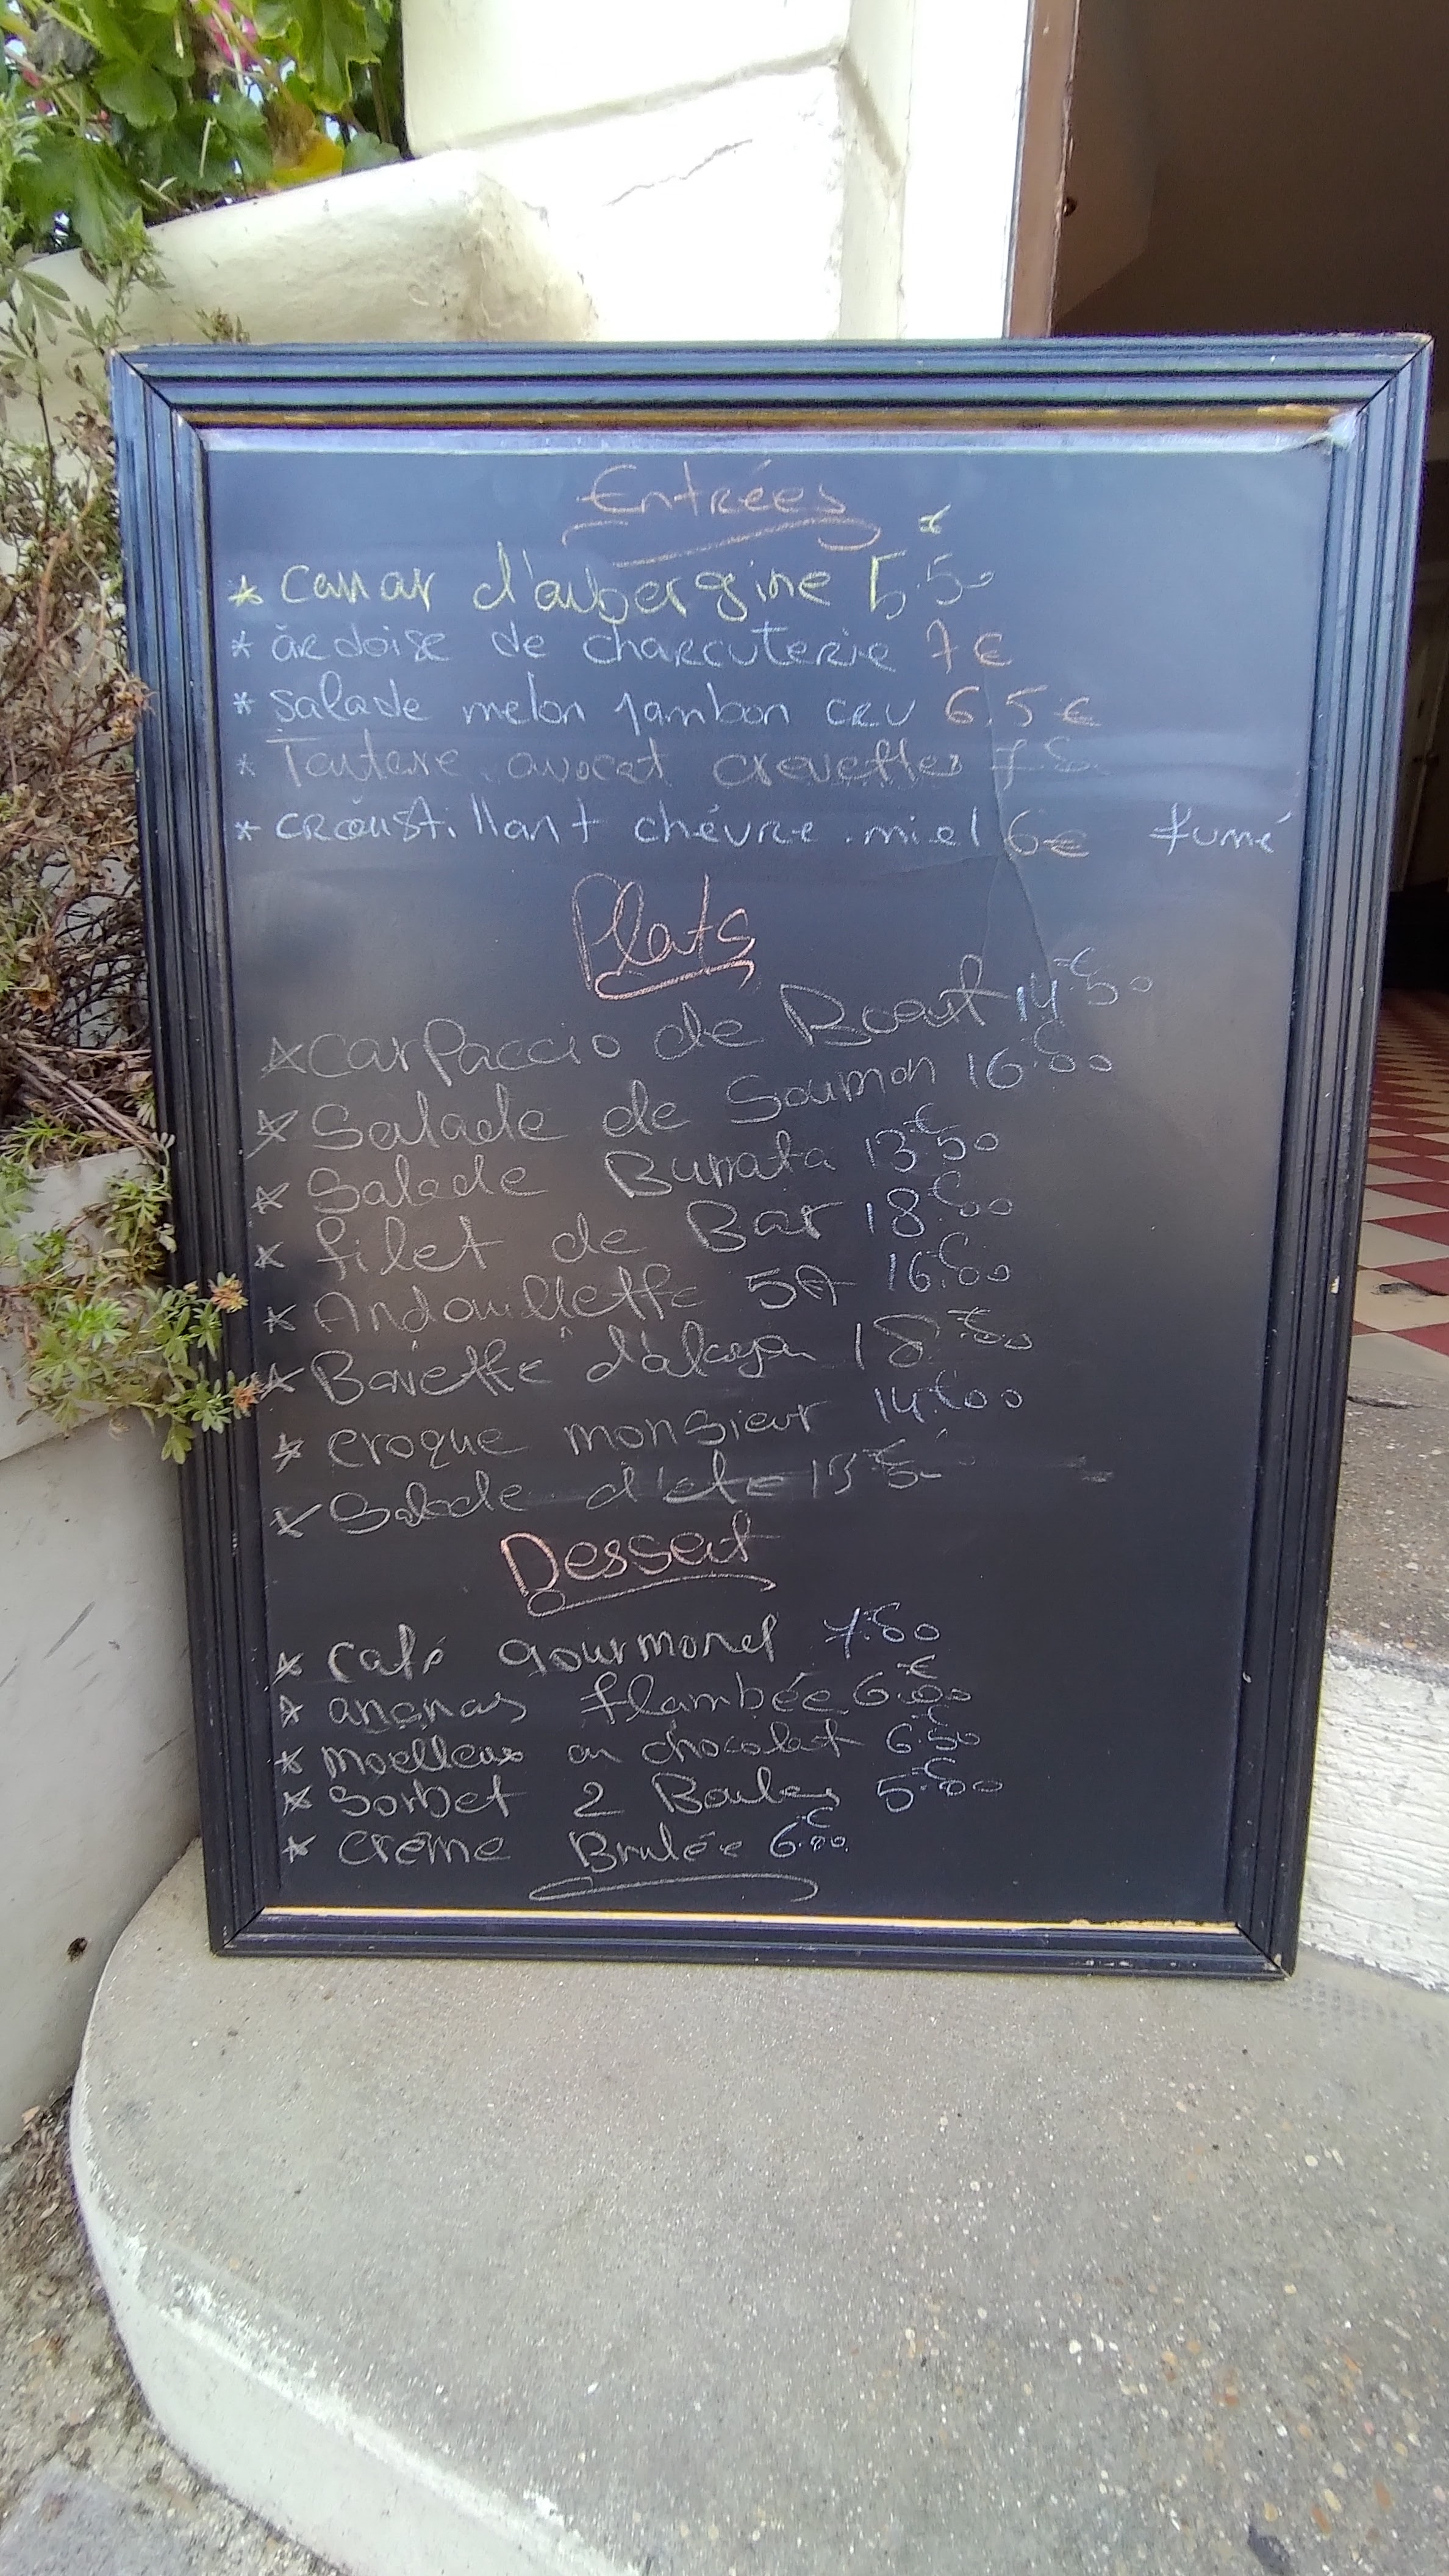 Entrées
* Caviar d'aubergine 5€.50
* ardoise de charcuterie 7€
* salade melon jambon cru 6.5€
* Tartare avocat crevettes
* croustillant chèvre.miel 6€ fumé
Plats
* Carpaccio de Boeuf 14€50
* Salade de Saumon 16€00
* Salade Burrata 13€50
* filet de Bar 18€00
* Andouillette 5A 16€00
* Bavette d'aloyau 18€00
* croque monsieur 14€00
* Salade d'été
Dessert
* café gourmand 7€80
* ananas flambée 6€00
* moelleux au chocolat 6€50
* Sorbet 2 Boules 5€00
* crème Brulée 6€00